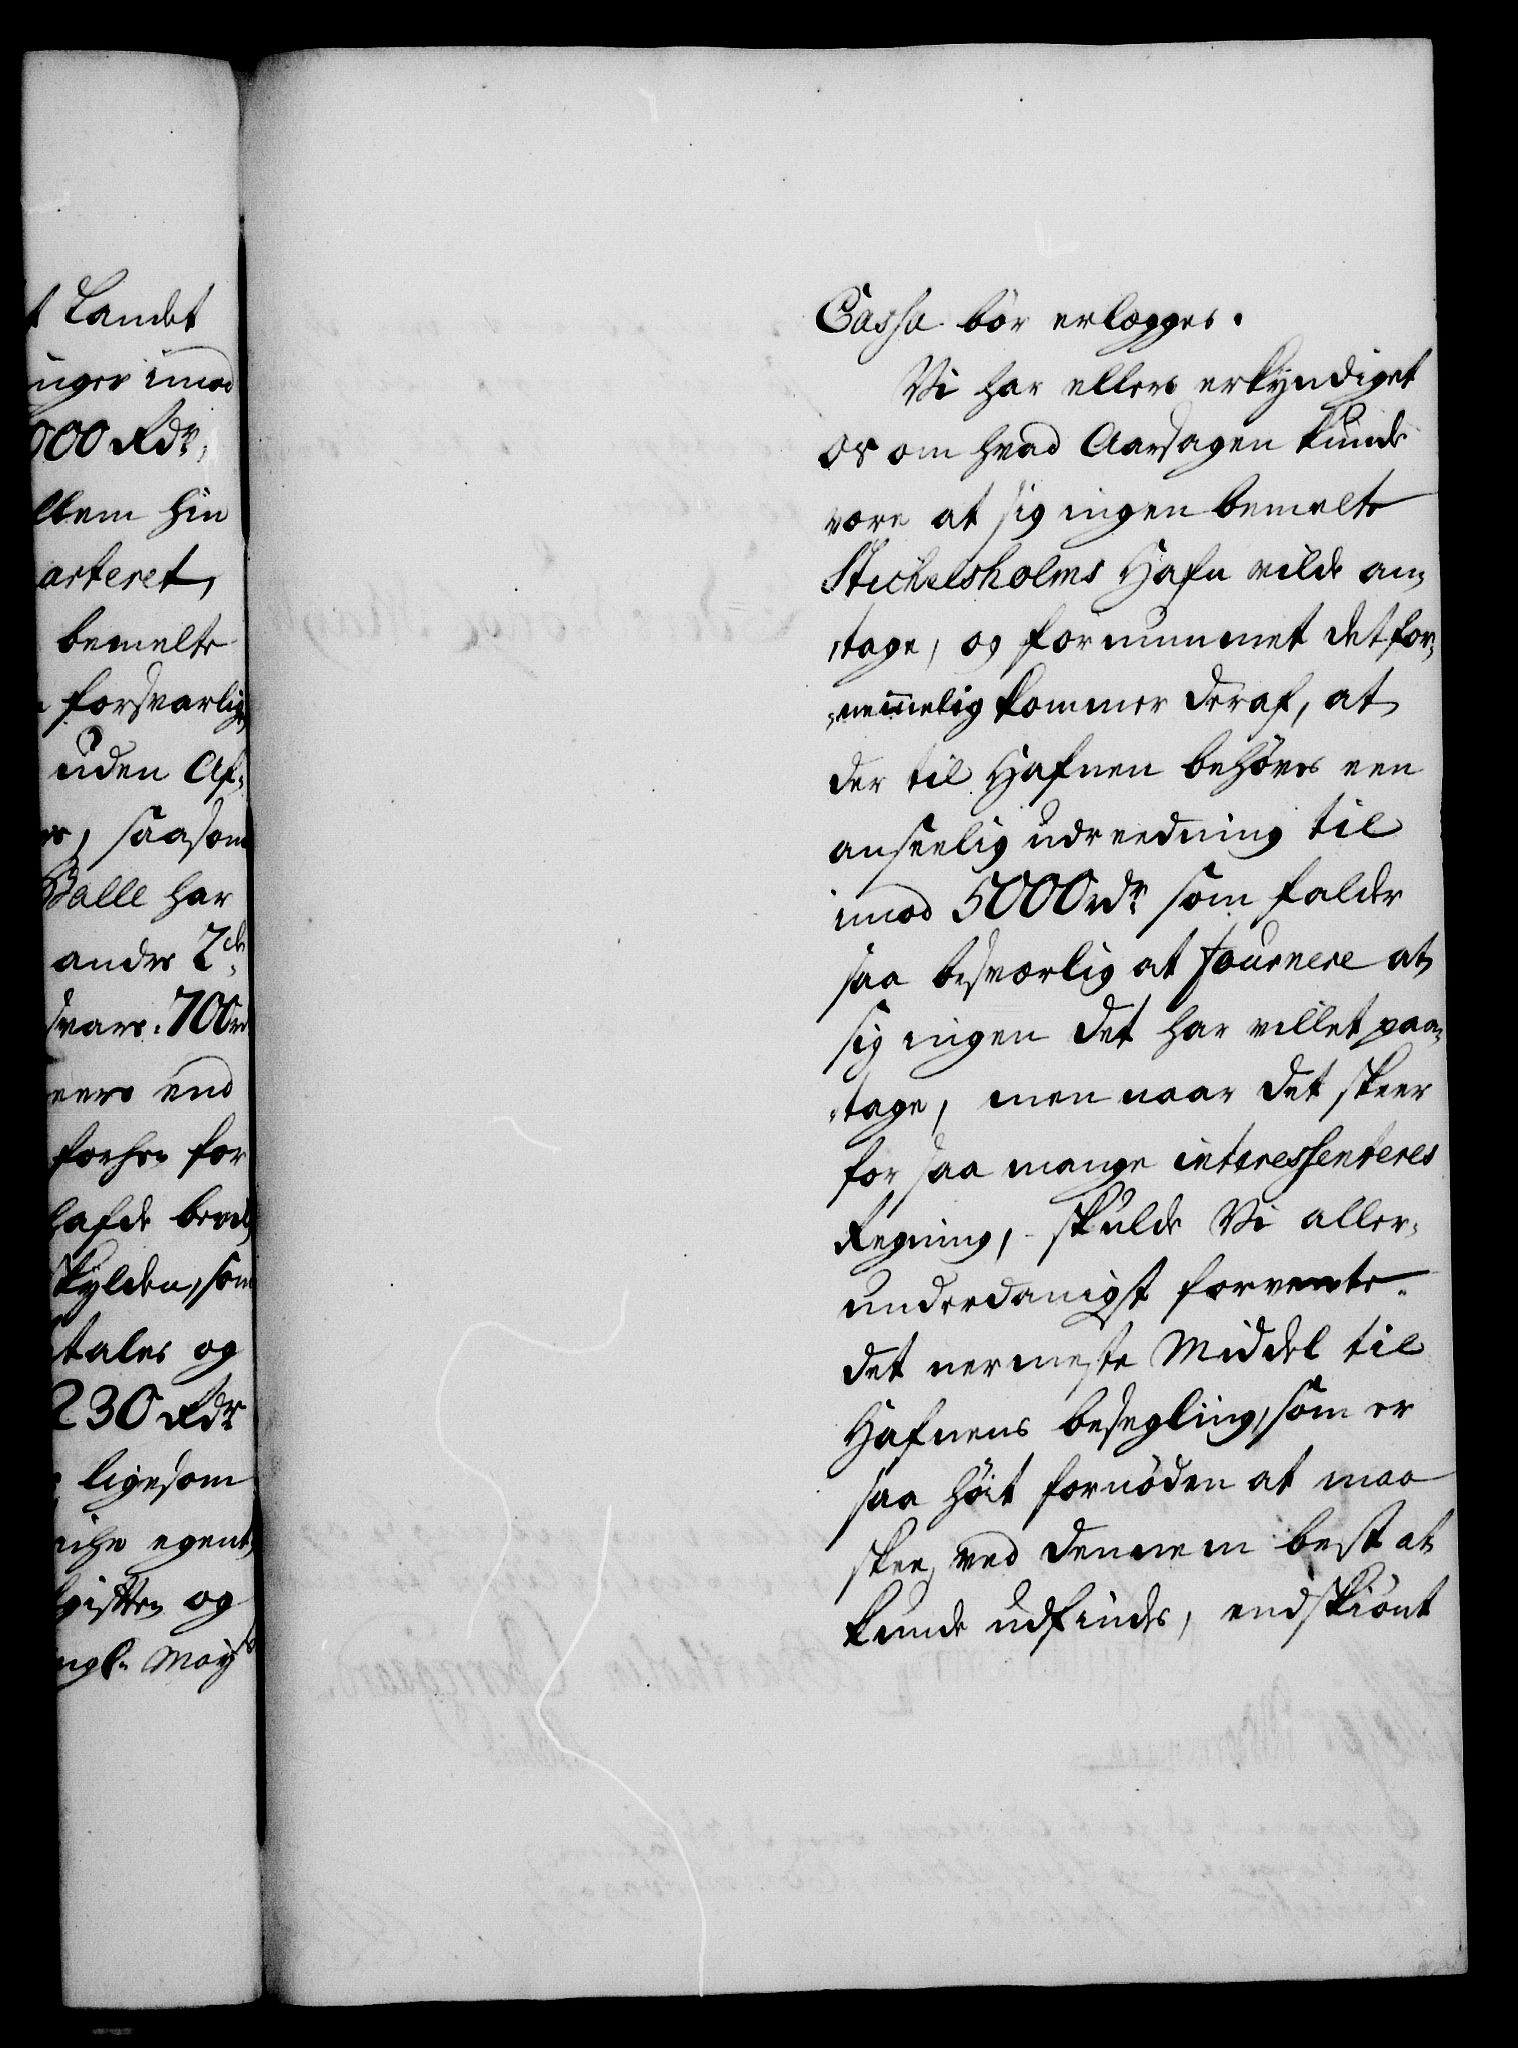 t Landet
inger imod
000 Rdr,
llem hin
arteret,
bemelte
forsvarlig
uden Af-
saasom
Balle har
andre 2de
svare. 700 rd
end
for
hafde
skylden, som
tales og
230 Rdr
ligesom
egent
og
May
Cassa bör erlægges.
Vi har ellers erkyndiget
os om hvad Aarsagen kunde
være at sig ingen bemelte
Stichelsholms Hafn vilde an-
tage, og fornummet det for-
nemmelig kommer deraf, at
der til Hafnen behöves een
anseelig udreedning til
imod 5000 rdr som falder
saa besværlig at fournere at
sig ingen det har villet paa-
tage, men naar det skeer
for saa mange interessenteres
Regning, skulde Vi aller-
underdanigst forvente
det nermeste Middel til
Hafnens besegling, som er
saa höit fornöden at maa
skee, ved dennem best at
kunde udfindes, endskiönt